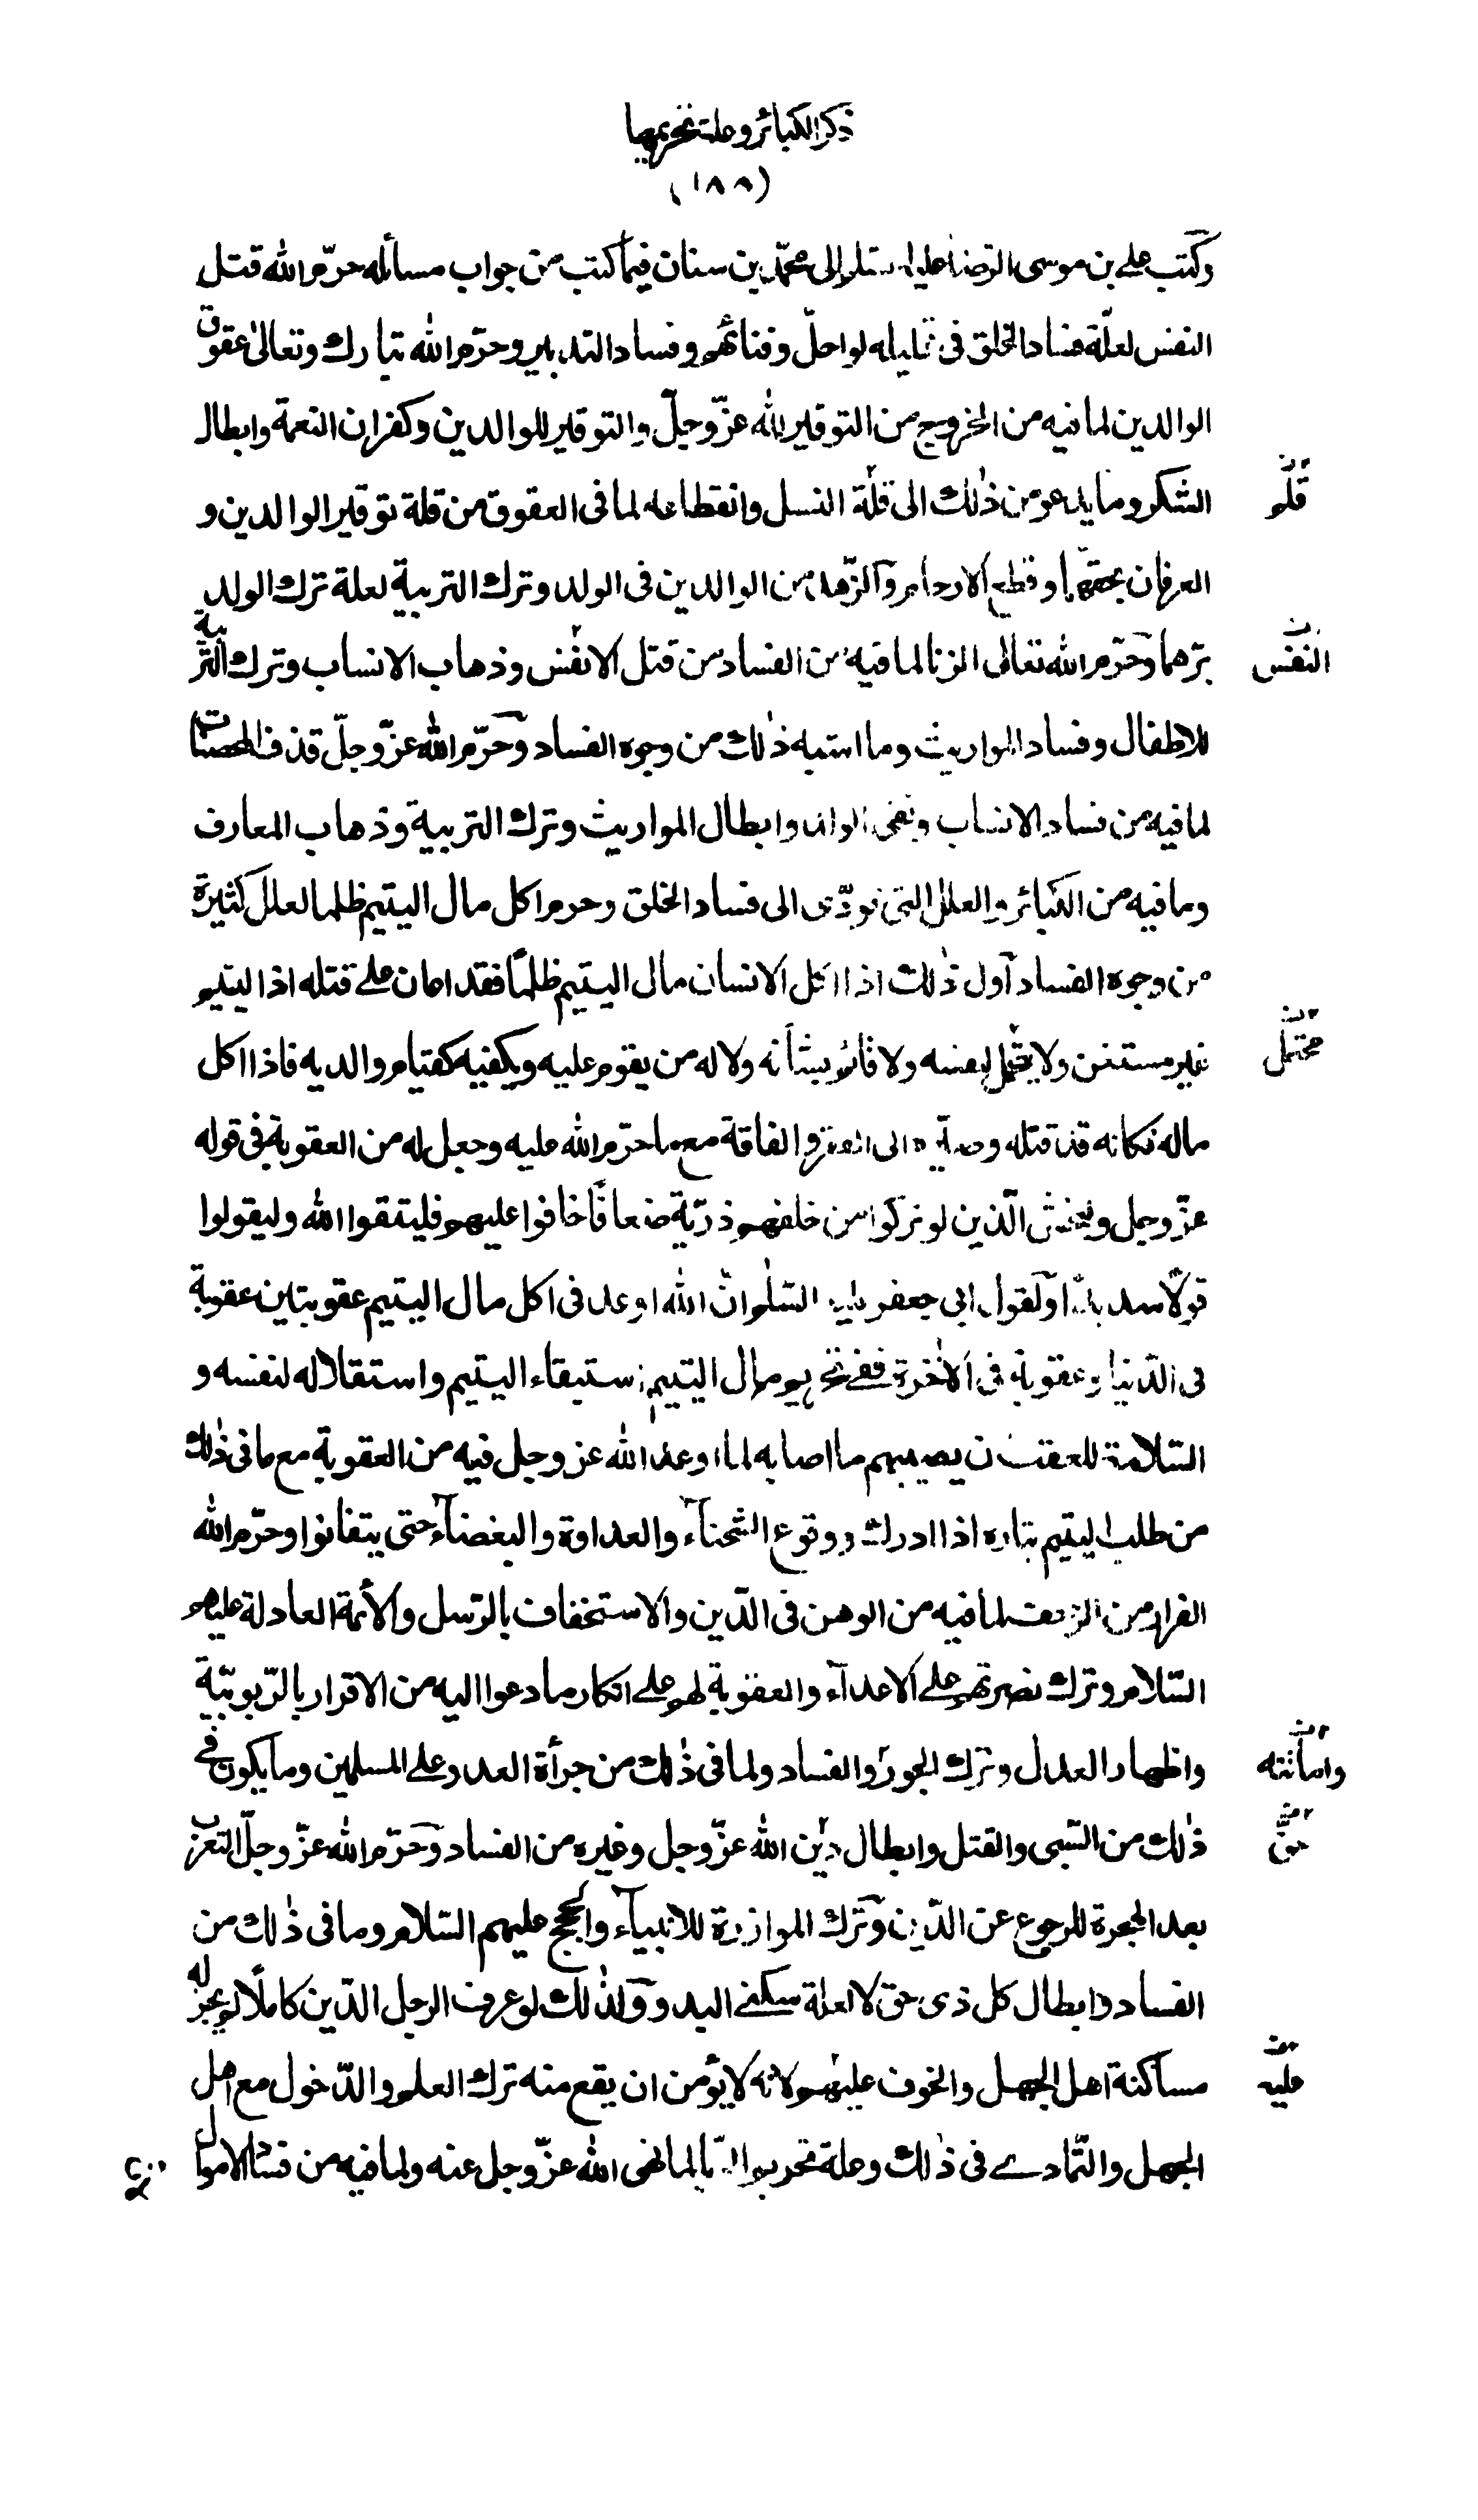 ذكر الكبائر وعلة تحريمها
(١٨٨)
وكتب علي بن موسى الرضا عليه السلام الى محمّد بن سنان فيما كتب من جواب مسائله حرّم الله قتل
النفس لعلّة فساد الخلق في تحليله لو احلّ وفنائهم وفساد التدبير وحرّم الله تبارك وتعالىٰ عقوق
الوالدين لما فيه من الخروج من التوقير لله عزّ وجلّ والتوقير للوالدين وكفران النعمة وابطال
الشكر وما يدعو من ذٰلك الى قلّة النسل وانقطاعه لما في العقوق من قلة توقير الوالدين و
قلّة
العرفان بحقهما وقطع الارحام والزّهد من الوالدين في الولد وترك التربية لعلة ترك الولد
برّهما وحرّم الله تعالى الزنا لما فيه من الفساد من قتل الانفس وذهاب الانساب وترك التربية
النفس
للاطفال وفساد المواريث وما اشبه ذٰلك من وجوه الفساد وحرّم الله عزّ وجلّ قذف المحصنات
لما فيه من فساد الانساب ونفى الولد وابطال المواريث وترك التربية وذهاب المعارف
وما فيه من الكبائر والعلل التي تؤدّى الى فساد الخلق وحرم اكل مال اليتيم ظلما لعلل كثيرة
من وجوه الفساد اول ذٰلك اذا اكل الانسان مال اليتيم ظلمًا فقد اعان على قتله اذ اليتيم
غير مستغن ولا يحتمل لنفسه ولا قائم بشأنه ولا له من يقوم عليه ويكفيه كقيام والديه فاذا اكل
محتمل
ماله فكانه قد قتله وصيّره الى الفقر والفاقة مع ما حرّم الله عليه وجعل له من العقوبة في قوله
عزّ وجل وليخش الّذين لو تركوا من خلفهم ذرّيّة ضعافًا خافوا عليهم فليتقوا الله وليقولوا
قولًا سديدًا ولقول ابى جعفر عليه السّلم انّ الله اوعد في اكل مال اليتيم عقوبتين عقوبة
في الدّنيا وعقوبة في الاٰخرة ففي تحريم مال اليتيم استبقاء اليتيم واستقلاله لنفسه و
السّلامة للعقب ان يصيبهم ما اصابه لما اوعد الله عز وجل فيه من العقوبة مع ما في ذٰلك
من طلب اليتيم بثاره اذا ادرك ووقوع الشحناء والعداوة والبغضاء حتى يتفانوا وحرّم الله
الفرار من الزحف لما فيه من الوهن في الدّين والاستخفاف بالرّسل والأئمة العادلة عليهم
السّلام وترك نصرتهم على الاعداء والعقوبة لهم على انكار ما دعوا اليه من الاقرار بالرّبوبيّة
واظهار العدل وترك الجور والفساد ولما في ذٰلك من جرأة العدو على المسلمين وما يكون في
واماتته
ذٰلك من السّبى والقتل وابطال دين الله عزّ وجل وغيره من الفساد وحرّم الله عزّ وجلّ التعرب
حق
بعد الهجرة للرجوع عن الدّين وترك الموازرة للانبياء والحجج عليهم السّلام وما في ذٰلك من
الفساد وابطال كل ذى حق لا لعلة سكنى البدو ولذٰلك لو عرف الرجل الدّين كاملًا لم يجز له
مساكنة اهل الجهل والخوف عليهم لانه لا يؤمن ان يقع منه ترك العلم والدّخول مع اهل
عليه
الجهل والتّمادى في ذٰلك وعلة تحريم الربا لما نهى الله عزّ وجل عنه ولما فيه من فساد الاموال